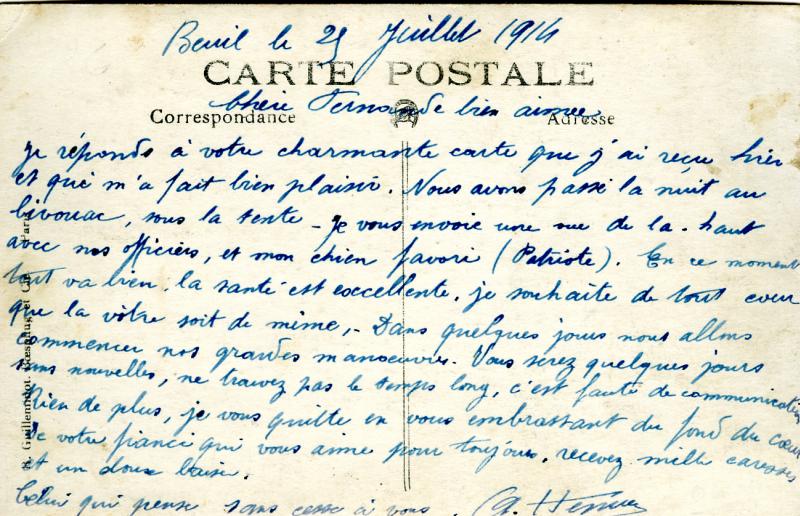 Beuil le 25 Juillet 1914
CARTE POSTALE
Chérie Fernande bien aimée
Correspondance
Adresse
je réponds à votre charmante carte que j'ai reçu hier
et qui m'a fait bien plaisir. Nous avons passé la nuit au
bivouac, sous la tente - je vous envoie une vue de la-haut
avec nos officiers, et mon chien favori (Patriote). En ce moment
tout va bien, la santé est excellente, je souhaite de tout cœur
que la vôtre soit de même, - Dans quelques jours nous allons
commencer nos grandes manœuvres. Vous serez quelques jours
sans nouvelles, ne trouvez pas le temps long, c'est faute de communication
Rien de plus, je vous quitte en vous embrassant du fond du cœur
De votre fiancé qui vous aime pour toujours. recevez mille caresses
et un doux baiser.
Celui qui pense sans cesse à vous. G.
Guilleminot